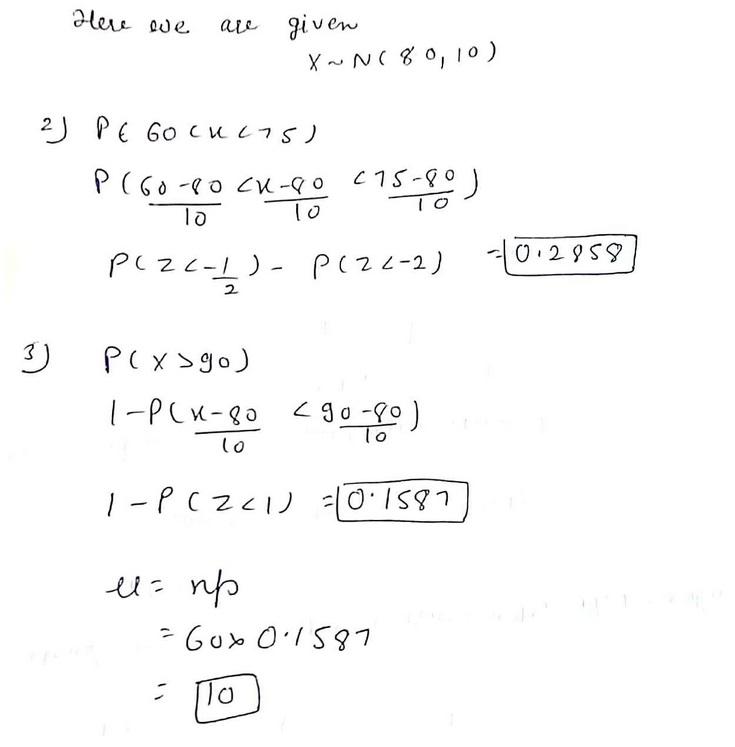 Here we are given
X~N(80,10)
2) P(60<x<75)
P(60-80/10 <x-80/10 <75-80/10)
P(Z<-1/2) - P(Z<-2) =0.2858
3) P(X>90)
1-P(x-80/10 <90-80/10)
1-P(Z<1) =0.1587
μ= np
= 60x0.1587
= 10